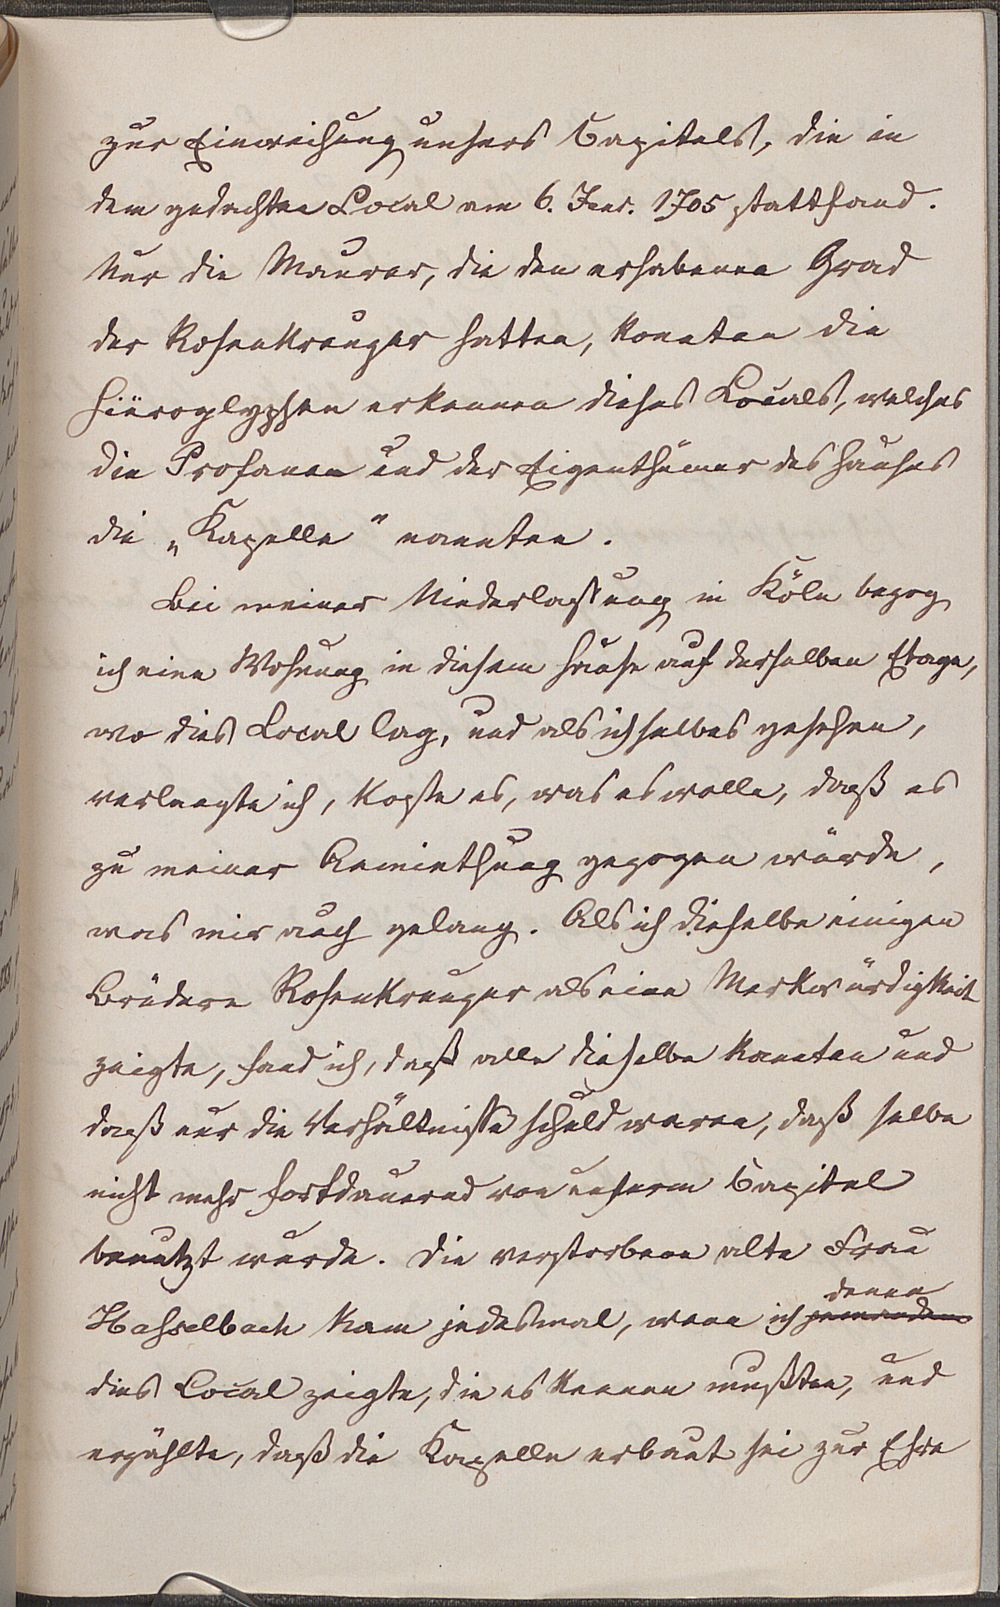 zur Einweihung unsers Capitels, die in
dem gedachten Local am 6. Jenr. 1705 stattfand.
Nur die Maurer, die den erhabenen Grad
der Rosenkreuzer hatten, konnten die
Hiëroglyphen erkennen dieses Locals, welches
die Profanen und der Eigenthümer des Hauses
die „Kapelle“ nannten.
Bei meiner Niederlassung in Köln bezog
ich eine Wohnung in diesem Hause auf derselben Etage,
wo dies Local lag, und als ich selbes gesehen,
verlangte ich, koste es, was es wolle, daß es
zu meiner Anmiethung gezogen würde,
was mir auch gelang. Als ich dieselbe einigen
Brüdern Rosenkreuzer als eine Merkwürdigkeit
zeigte, fand ich, daß alle dieselbe kannten und
daß nur die Verhältnisse schuld waren, daß selbe
nicht mehr fortdauernd von unserm Capitel
benutzt wurde. Die verstorbene alte Frau
Hasselbach kam jedesmal, wenn ich jemandem denen
dies Local zeigte, die es kennen mußten, und
erzählte, daß die Kapelle erbaut sei zur Ehre